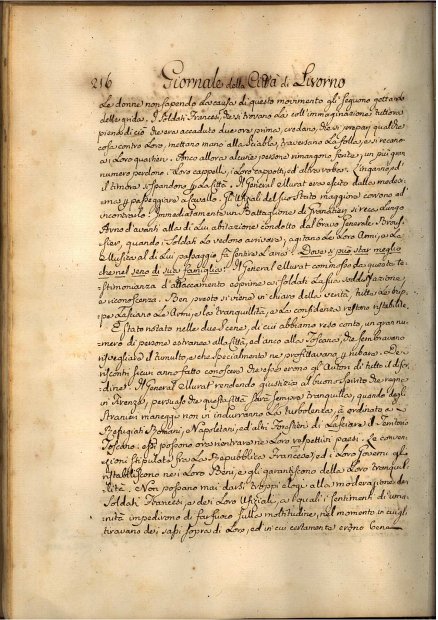 216 Giornale della Città di Livorno
Le donne non sapendo la causa di questo movimento gli seguono gettando
delle grida. I Soldati Francesi, che si trovano la coll'immaginazione tuttora
piena di ciò che era accaduto due ore prima, credano, che si prepari qualche
cosa contro Loro, mettano mano alla Sciabla, traversano la folla, e si recano
ai Loro quartieri. Anco allora alcune persone rimangono ferite, un più gran
numero perdono i Loro cappelli, i Loro cappotti, ed altra robba. L'inganno, ed
il timore si spandono per la Città. Il General Murat era escito dalla medesi-
ma per passeggiare a Cavallo. Gli Ufiziali del suo Stato maggiore corrono ad
incontrarlo. Immediatamente un Battaglione di Granatieri si reca lungo
Arno d'avanti alla di Lui abitazione condotto dal bravo Generale
sier, quando i Soldati lo vedono arrivare, agitano le Loro Armi, e la
Musica al di Lui passaggio fà sentire l'aria: Dove si può star meglio
che nel seno di sua famiglia. Il General Murat commosso da questa te-
stimonianza d'attaccamento esprime ai Soldati la sua soddisfazione,
e riconoscenza. Ben presto si viene in chiaro della verità, tutte le trup-
pe lasciano le Armi, e la tranquillità, e la confidenza restano ristabilite.
È stato notato nelle due Scene, di cui abbiamo reso conto, un gran nu-
mero di persone estranee alla Città, ed anco alla Toscana, che sembravano
risvegliare il tumulto, e che specialmente ne profittavano per rubare. De'
riscontri sicuri anno fatto conoscere che essi erano gli Autori di tutto il disor-
dine. Il General Murat rendendo giustizia al buono spirito che regna
in Firenze, persuaso che questa Città sarà sempre tranquilla, quando degli
Stranieri maneggi non indurranno la turbolenza, à ordinato a
Refugiati Romani, Napoletani, ed altri Forestieri di lasciare il Territorio
Toscano. essi possono ora rientrare ne' Loro respettivi paesi. Le conven-
zioni stipulate fra la Repubblica Francese, ed i Loro Governi gli
ristabiliscono nei Loro Beni, e gli garantiscono della Loro tranquil-
lità. Non possano mai darsi troppi elogi alla moderazione dei
Soldati Francesi, e dei Loro Ufiziali, ai quali i sentimenti di uma-
nità impedirono di far fuoco sulla moltitudine, nel momento in cui gli
tiravano dei sassi sopra di Loro, ed in cui certamente erano bene